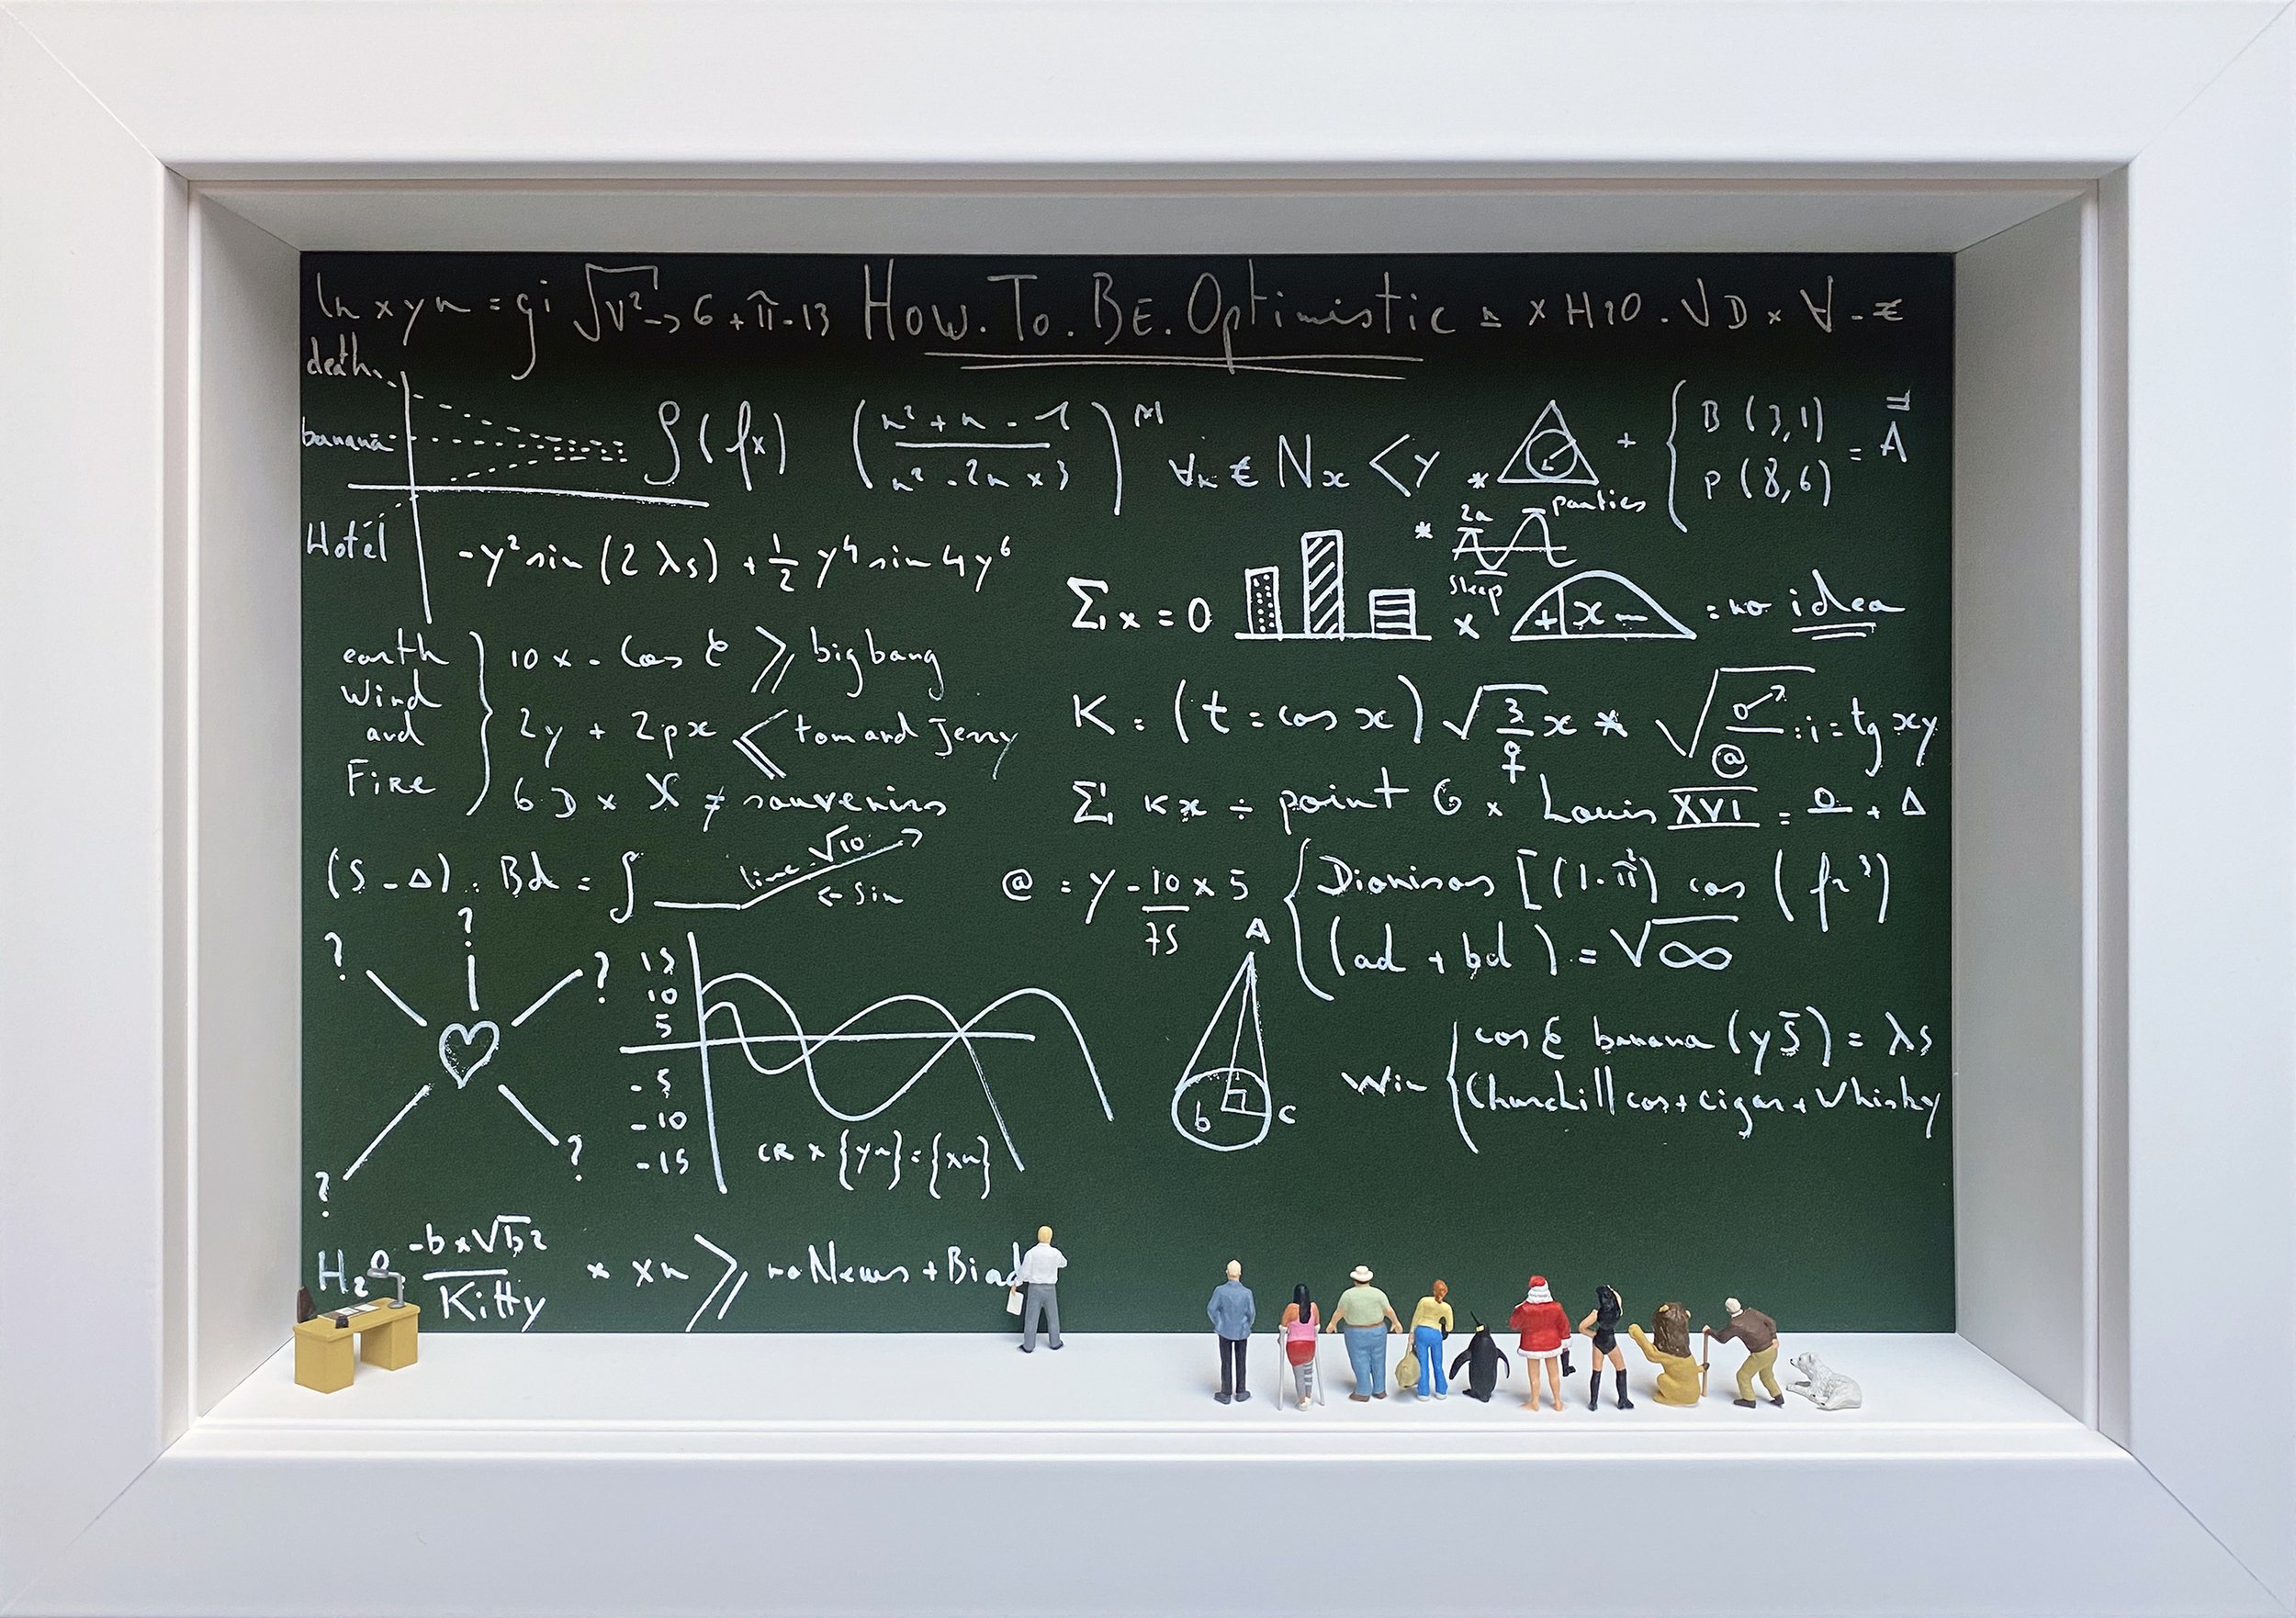 ln x y n = gi √v² → 6 + π - 13 How. To. BE. Optimistic = x H2O - √D x ∀ - €
death
banana
Hotel
∫(fx) (n² + n - 1 / n² - 2n x 3)ᴹ ∀n € Nx < y *
+ { B (3,1)
P (8,6) = A
-y² sin (2 λs) + 1/2 y⁴ sin 4y⁶
* 2a parties
sleep
Σ x = 0
x + x - = no idea
earth
Wind
and
Fire
10 x - Cos ≥ big bang
2y + 2px ≤ tom and Jerry
6 D x X ≠ souvenirs
K = (t = cos x) √3/♀ x * √♂/@ : i = tg xy
Σ Kx ÷ point G x Louis XVI = 0 + Δ
(S - Δ) : Bd = ∫ line √10
← sin
@ = y - 10/75 x 5
{ Dionisos [(1 - π²) cos (fx³)
(ad + bd) = √∞
? ? ? ? ?
15
10
5
-5
-10
-15
CR x {yn} = {xn}
A
b
C
Win { cos banana (y5) = λs
Churchill cos + cigar + Whisky
H₂O -b x √b2 / Kitty x xn ≥ no News + B